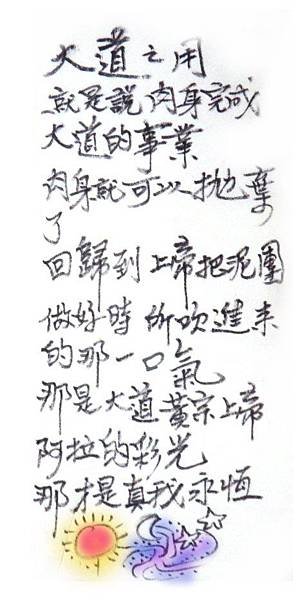 大道之用
就是說肉身完成
大道的事業
肉身就可以拋棄
了
回歸到上帝把泥團
做好時所吹進來
的那一口氣
那是大道黃宗上帝
阿拉的彩光
那才是真我永恆